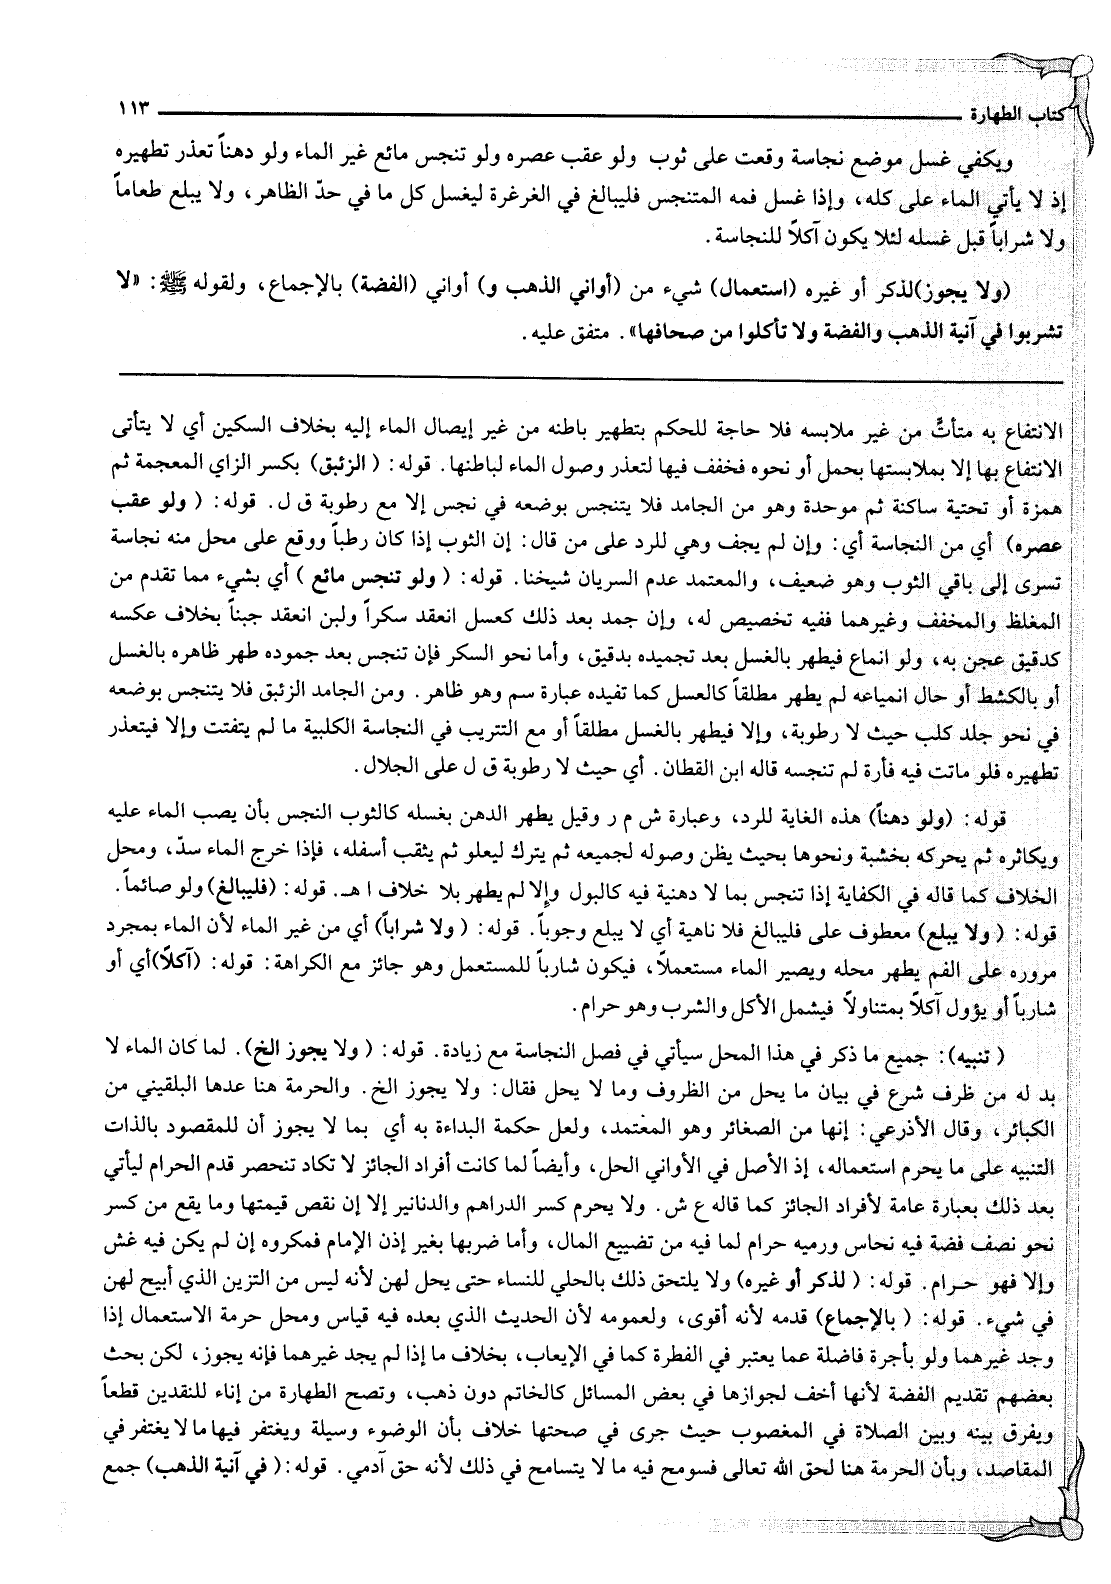 كتاب الطهارة ١١٣
ويكفي غسل موضع نجاسة وقعت على ثوب ولو عقب عصره ولو تنجس مائع غير الماء ولو دهناً تعذر تطهيره
إذ لا يأتي الماء على كله، وإذا غسل فمه المتنجس فليبالغ في الغرغرة ليغسل كل ما في حدّ الظاهر، ولا يبلع طعاماً
ولا شراباً قبل غسله لئلا يكون آكلاً للنجاسة.
(ولا يجوز)لذكر أو غيره (استعمال) شيء من (أواني الذهب و) أواني (الفضة) بالإجماع، ولقوله ﷺ: «لا
تشربوا في آنية الذهب والفضة ولا تأكلوا من صحافها». متفق عليه.
الانتفاع به متأتٍّ من غير ملابسه فلا حاجة للحكم بتطهير باطنه من غير إيصال الماء إليه بخلاف السكين أي لا يتأتى
الانتفاع بها إلا بملابستها بحمل أو نحوه فخفف فيها لتعذر وصول الماء لباطنها. قوله: (الزئبق) بكسر الزاي المعجمة ثم
همزة أو تحتية ساكنة ثم موحدة وهو من الجامد فلا يتنجس بوضعه في نجس إلا مع رطوبة ق ل. قوله: (ولو عقب
عصره) أي من النجاسة أي: وإن لم يجف وهي للرد على من قال: إن الثوب إذا كان رطباً ووقع على محل منه نجاسة
تسرى إلى باقي الثوب وهو ضعيف، والمعتمد عدم السريان شيخنا. قوله: (ولو تنجس مائع) أي بشيء مما تقدم من
المغلظ والمخفف وغيرهما ففيه تخصيص له، وإن جمد بعد ذلك كعسل انعقد سكراً ولبن انعقد جبناً بخلاف عكسه
كدقيق عجن به، ولو انماع فيطهر بالغسل بعد تجميده بدقيق، وأما نحو السكر فإن تنجس بعد جموده طهر ظاهره بالغسل
أو بالكشط أو حال انمياعه لم يطهر مطلقاً كالعسل كما تفيده عبارة سم وهو ظاهر. ومن الجامد الزئبق فلا يتنجس بوضعه
في نحو جلد كلب حيث لا رطوبة، وإلا فيطهر بالغسل مطلقاً أو مع التتريب في النجاسة الكلبية ما لم يتفتت وإلا فيتعذر
تطهيره فلو ماتت فيه فأرة لم تنجسه قاله ابن القطان. أي حيث لا رطوبة ق ل على الجلال.
قوله: (ولو دهناً) هذه الغاية للرد، وعبارة ش م ر وقيل يطهر الدهن بغسله كالثوب النجس بأن يصب الماء عليه
ويكاثره ثم يحركه بخشبة ونحوها بحيث يظن وصوله لجميعه ثم يترك ليعلو ثم يثقب أسفله، فإذا خرج الماء سدّ، ومحل
الخلاف كما قاله في الكفاية إذا تنجس بما لا دهنية فيه كالبول وإلا لم يطهر بلا خلاف ا هـ. قوله: (فليبالغ) ولو صائماً.
قوله: (ولا يبلع) معطوف على فليبالغ فلا ناهية أي لا يبلع وجوباً. قوله: (ولا شراباً) أي من غير الماء لأن الماء بمجرد
مروره على الفم يطهر محله ويصير الماء مستعملاً، فيكون شارباً للمستعمل وهو جائز مع الكراهة: قوله: (آكلاً)أي أو
شارباً أو يؤول آكلاً بمتناولاً فيشمل الأكل والشرب وهو حرام.
(تنبيه): جميع ما ذكر في هذا المحل سيأتي في فصل النجاسة مع زيادة. قوله: (ولا يجوز الخ). لما كان الماء لا
بد له من ظرف شرع في بيان ما يحل من الظروف وما لا يحل فقال: ولا يجوز الخ. والحرمة هنا عدها البلقيني من
الكبائر، وقال الأذرعي: إنها من الصغائر وهو المعتمد، ولعل حكمة البداءة به أي بما لا يجوز أن للمقصود بالذات
التنبيه على ما يحرم استعماله، إذ الأصل في الأواني الحل، وأيضاً لما كانت أفراد الجائز لا تكاد تنحصر قدم الحرام ليأتي
بعد ذلك بعبارة عامة لأفراد الجائز كما قاله ع ش. ولا يحرم كسر الدراهم والدنانير إلا إن نقص قيمتها وما يقع من كسر
نحو نصف فضة فيه نحاس ورميه حرام لما فيه من تضييع المال، وأما ضربها بغير إذن الإمام فمكروه إن لم يكن فيه غش
وإلا فهو حرام. قوله: (لذكر أو غيره) ولا يلتحق ذلك بالحلي للنساء حتى يحل لهن لأنه ليس من التزين الذي أبيح لهن
في شيء. قوله: (بالإجماع) قدمه لأنه أقوى، ولعمومه لأن الحديث الذي بعده فيه قياس ومحل حرمة الاستعمال إذا
وجد غيرهما ولو بأجرة فاضلة عما يعتبر في الفطرة كما في الإيعاب، بخلاف ما إذا لم يجد غيرهما فإنه يجوز، لكن بحث
بعضهم تقديم الفضة لأنها أخف لجوازها في بعض المسائل كالخاتم دون ذهب، وتصح الطهارة من إناء للنقدين قطعاً
ويفرق بينه وبين الصلاة في المغصوب حيث جرى في صحتها خلاف بأن الوضوء وسيلة ويغتفر فيها ما لا يغتفر في
المقاصد، وبأن الحرمة هنا لحق الله تعالى فسومح فيه ما لا يتسامح في ذلك لأنه حق آدمي. قوله:(في آنية الذهب) جمع